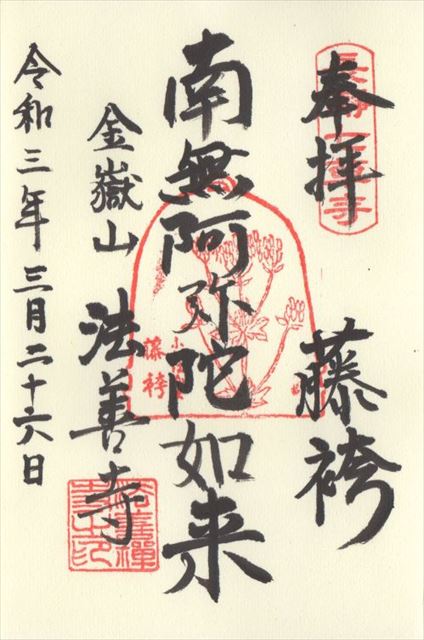 奉拝
藤袴
南無阿弥陀如来
藤袴
金嶽山
法善寺
令和三年三月二十六日